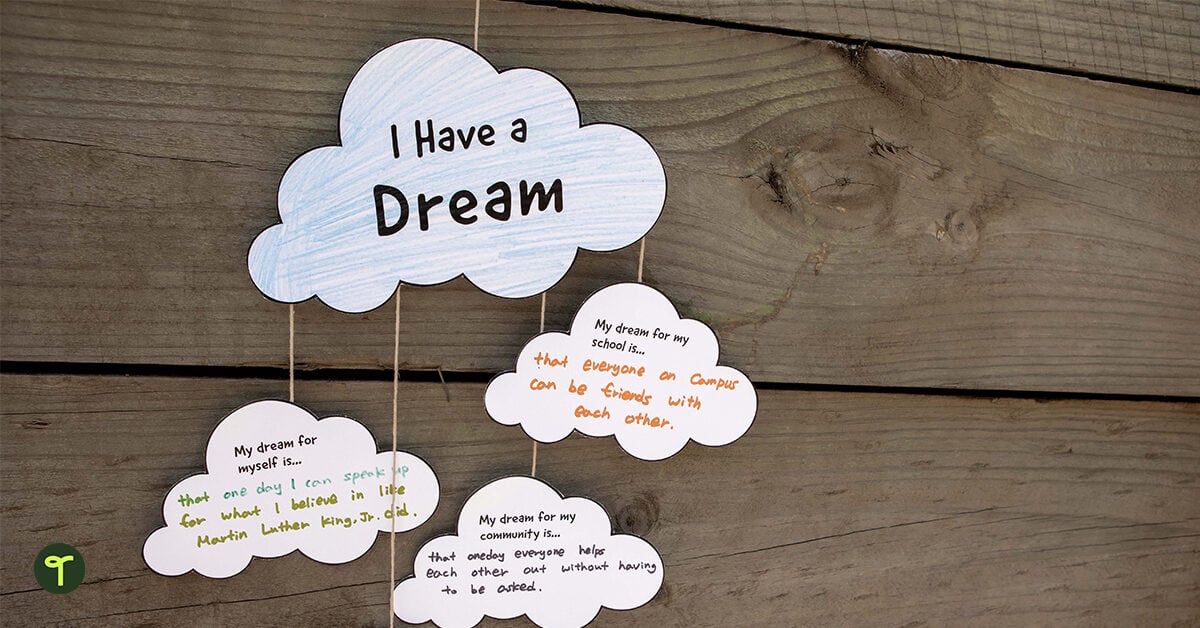 I Have a
Dream
My dream for my
school is...
that everyone on Campus
can be friends with
each other.
My dream for
myself is...
that one day I can speak up
for what I believe in like
Martin Luther King, Jr. did.
My dream for my
community is...
that oneday everyone helps
each other out without having
to be asked.